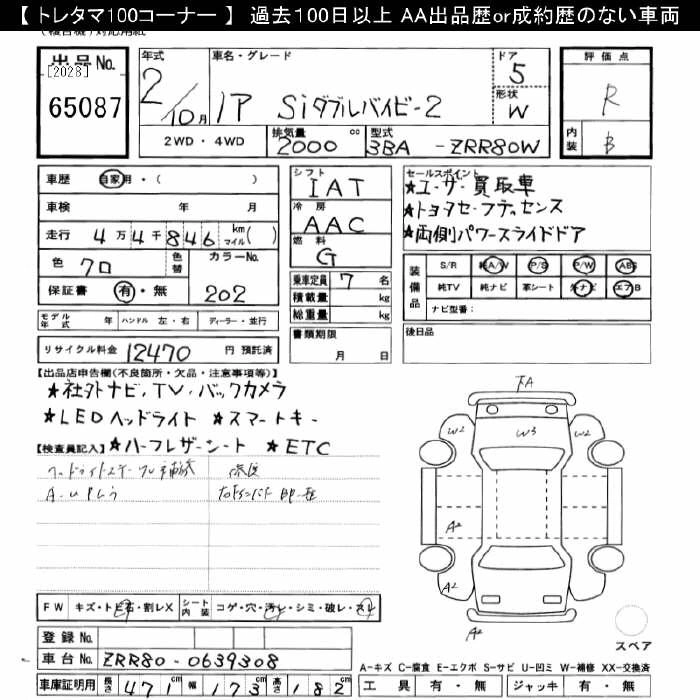 【トレタマ100コーナー】 過去100日以上 AA出品歴or成約歴のない車両
出品No. [2028] 65087
年式 2/10月 車名・グレード ノア Siダブルバイビー2 ドア 5 形状 W
2WD・4WD 排気量 2000 cc 型式 3BA -ZRR80W
評価点 R
内装 B
車歴 自家用・( )
車検 年 月
走行 4万4千846 km マイル( )
色 クロ 色替 カラーNo. 202
保証書 有・無
シフト IAT
冷房 AAC
燃料 G
乗車定員 7 名
積載量 kg
総重量 kg
書類期限 月 日
セールスポイント
★ユーザー買取車
★トヨタセーフティセンス
★両側パワースライドドア
装備品 S/R 純A/W P/S P/W ABS
純TV 純ナビ 革シート 外ナビ エアB
ナビ型番:
後日品
モデル年式 年 ハンドル 左・右 ディーラー・並行
リサイクル料金 12470 円 預託済
【出品店申告欄(不良箇所・欠品・注意事項等)】
★社外ナビ、TV、バックカメラ
★LEDヘッドライト ★スマートキー
★ハーフレザーシート ★ETC
【検査員記入】
FA
W2 W3 W2
A2
A2
A2
FW キズ・トビ石・割レX シート内装 コゲ・穴・汚レ・シミ・破レ・スレ
登録No.
車台No. ZRR80-0639308
車庫証明用 長さ 471 cm 幅 173 cm 高さ 182 cm
スペア
A-キズ C-腐食 E-エクボ S-サビ U-凹ミ W-補修 XX-交換済
工具 有・無 ジャッキ 有・無